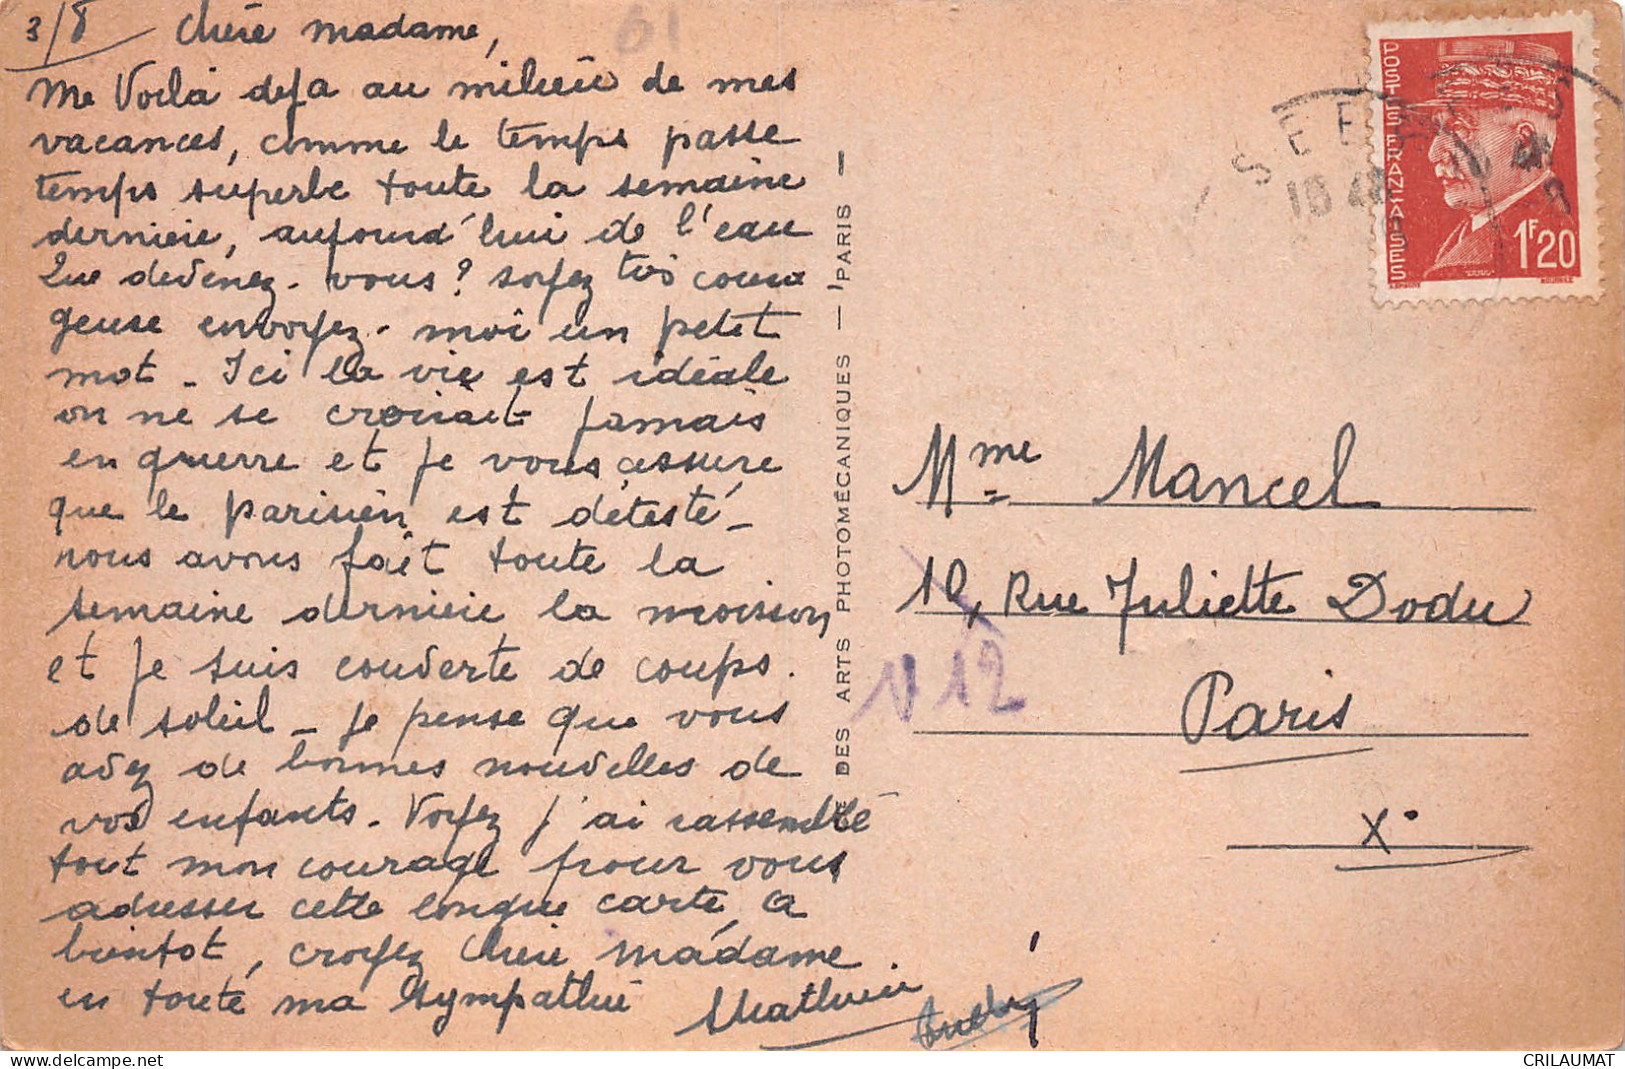 3/8 Chère madame,
me Voilà deja au milieu de mes
vacances, comme le temps passe
temps superbe toute la semaine
dernière, aujourd'hui de l'eau
Que devenez-vous? soyez très coura
geuse envoyez-moi un petit
mot - Ici la vie est idéale
on ne se croirait jamais
en guerre et je vous assure
que le parisien est détesté -
nous avons fait toute la
semaine dernière la moisson
et je suis couverte de coups
de soleil - je pense que vous
avez de bonnes nouvelles de
vos enfants. Voyez j'ai rassemblé
tout mon courage pour vous
adresser cette longue carte, a
bientot, croyez chère madame
en toute ma sympathie
61
DES ARTS PHOTOMÉCANIQUES — PARIS —
POSTES FRANÇAISES
1F20
Mme Mancel
10, Rue Juliette Dodu
V 12
Paris
Xe
CRILAUMAT